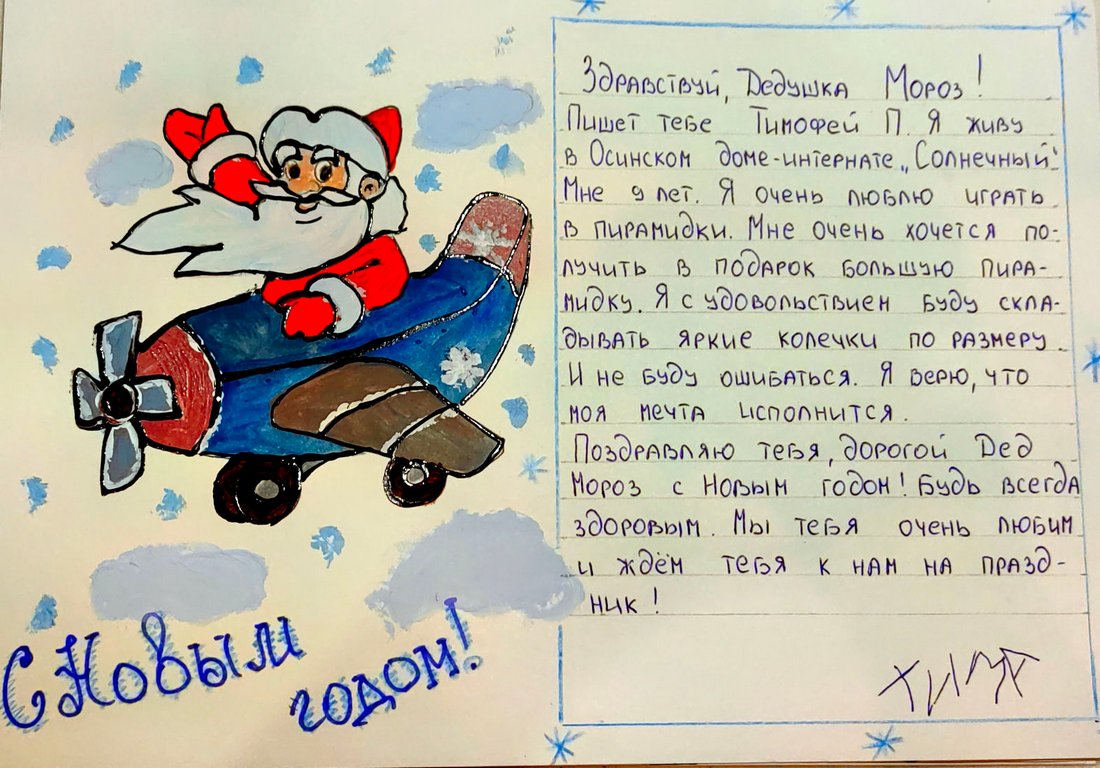 Здравствуй, Дедушка Мороз!
Пишет тебе Тимофей П. Я живу
в Осинском доме-интернате „Солнечный".
Мне 9 лет. Я очень люблю играть
в пирамидки. Мне очень хочется по-
лучить в подарок большую пира-
мидку. Я с удовольствием буду скла-
дывать яркие колечки по размеру.
И не буду ошибаться. Я верю, что
моя мечта исполнится.
Поздравляю тебя, дорогой Дед
Мороз с Новым годом! Будь всегда
здоровым. Мы тебя очень любим
и ждём тебя к нам на празд-
ник!
Тима
С Новым
годом!